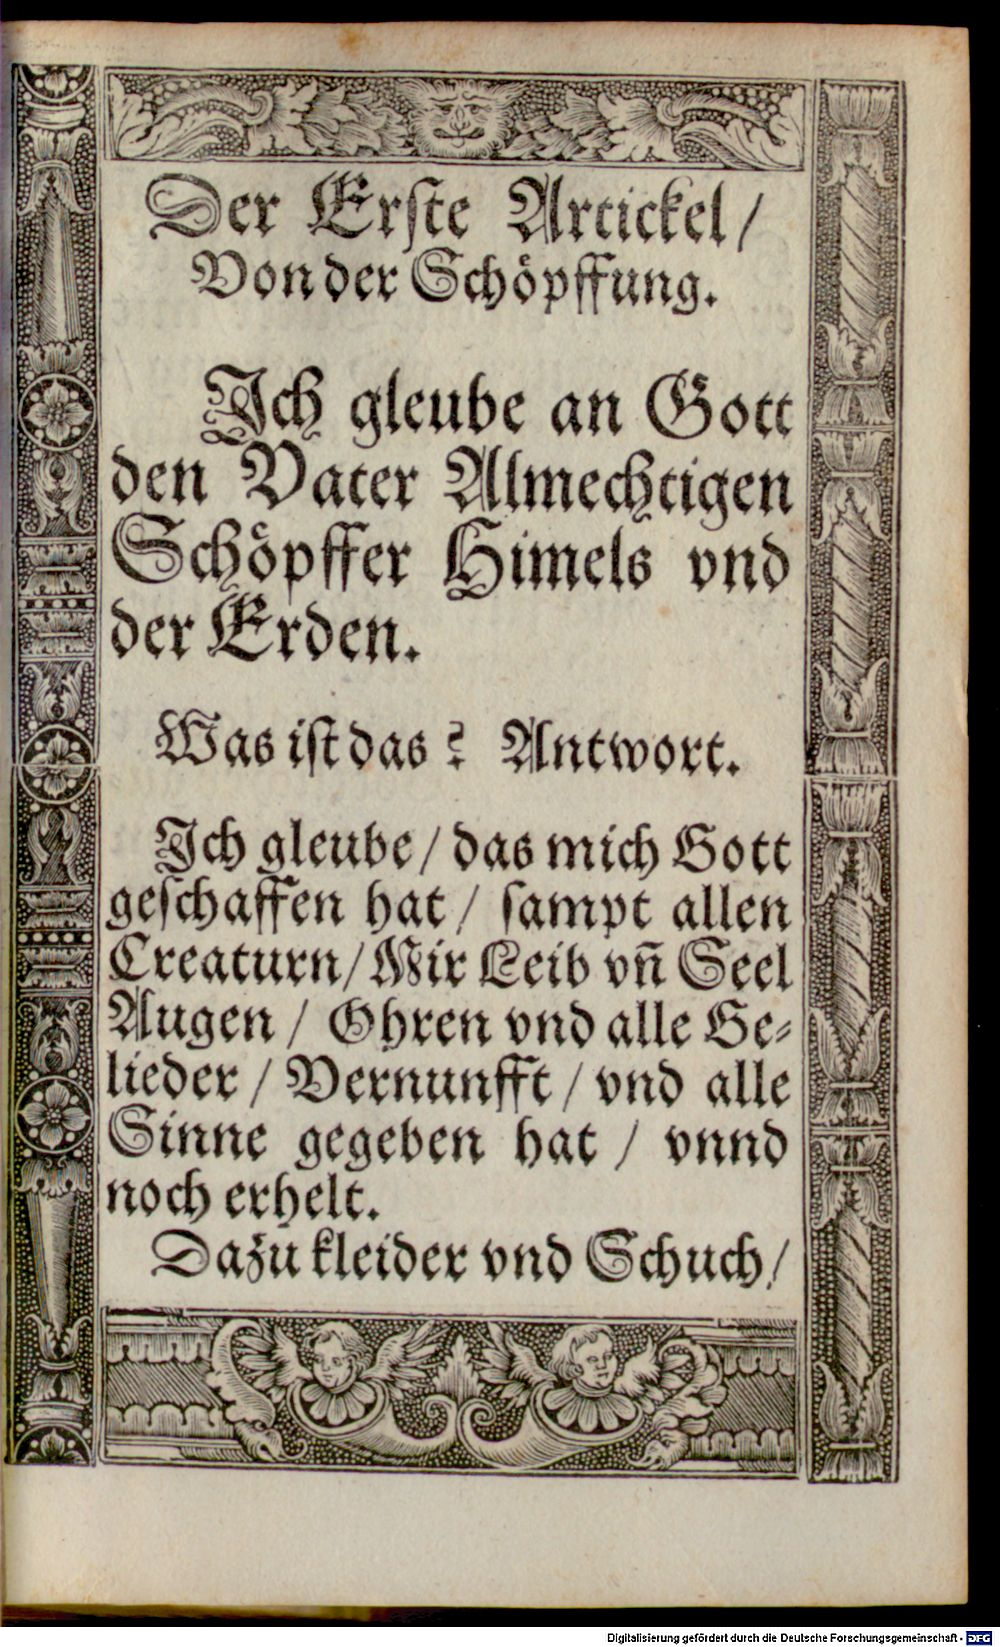 Der Erſte Artickel /
Von der Schöpffung.
Ich gleube an Gott
den Vater Almechtigen
Schöpffer Himels vnd
der Erden.
Was iſt das? Antwort.
Ich gleube / das mich Gott
geſchaffen hat / ſampt allen
Creaturn / Mir Leib vñ Seel
Augen / Ohren vnd alle Ge⸗
lieder / Vernunfft / vnd alle
Sinne gegeben hat / vnnd
noch erhelt.
Dazu kleider vnd Schuch /
Digitalisierung gefördert durch die Deutsche Forschungsgemeinschaft - DFG